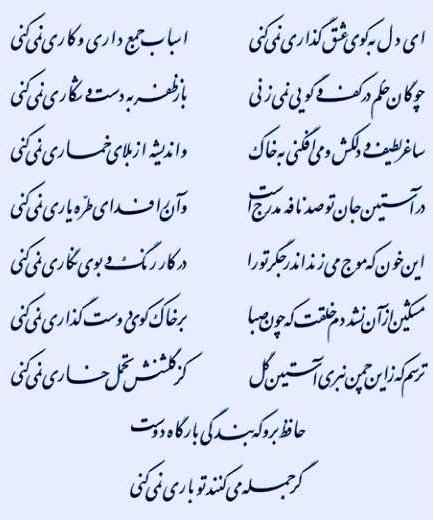 ای دل به کوی عشق گذاری نمی‌کنی اسباب جمع داری و کاری نمی‌کنی
چوگان حکم در کف و گویی نمی‌زنی باز ظفر به دست و شکاری نمی‌کنی
ساغر لطیف و دلکش و می افکنی به خاک و اندیشه از بلای خماری نمی‌کنی
در آستین جان تو صد نافه مدرج است وان را فدای طره یاری نمی‌کنی
این خون که موج می‌زند اندر جگر تو را در کار رنگ و بوی نگاری نمی‌کنی
مشکین از آن نشد دم خلقت که چون صبا بر خاک کوی دوست گذاری نمی‌کنی
ترسم که زاین چمن نبری آستین گل کز گلشنش تحمل خاری نمی‌کنی
حافظ برو که بندگی بارگاه دوست
گر جمله می‌کنند تو باری نمی‌کنی